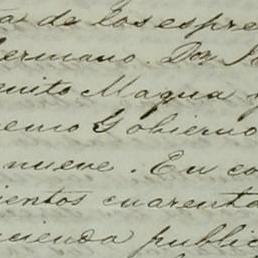 de los espre
ermano. Don
enito Magua y
emo Gobierno
nueve. En co
ientos cuarenta
cienda public